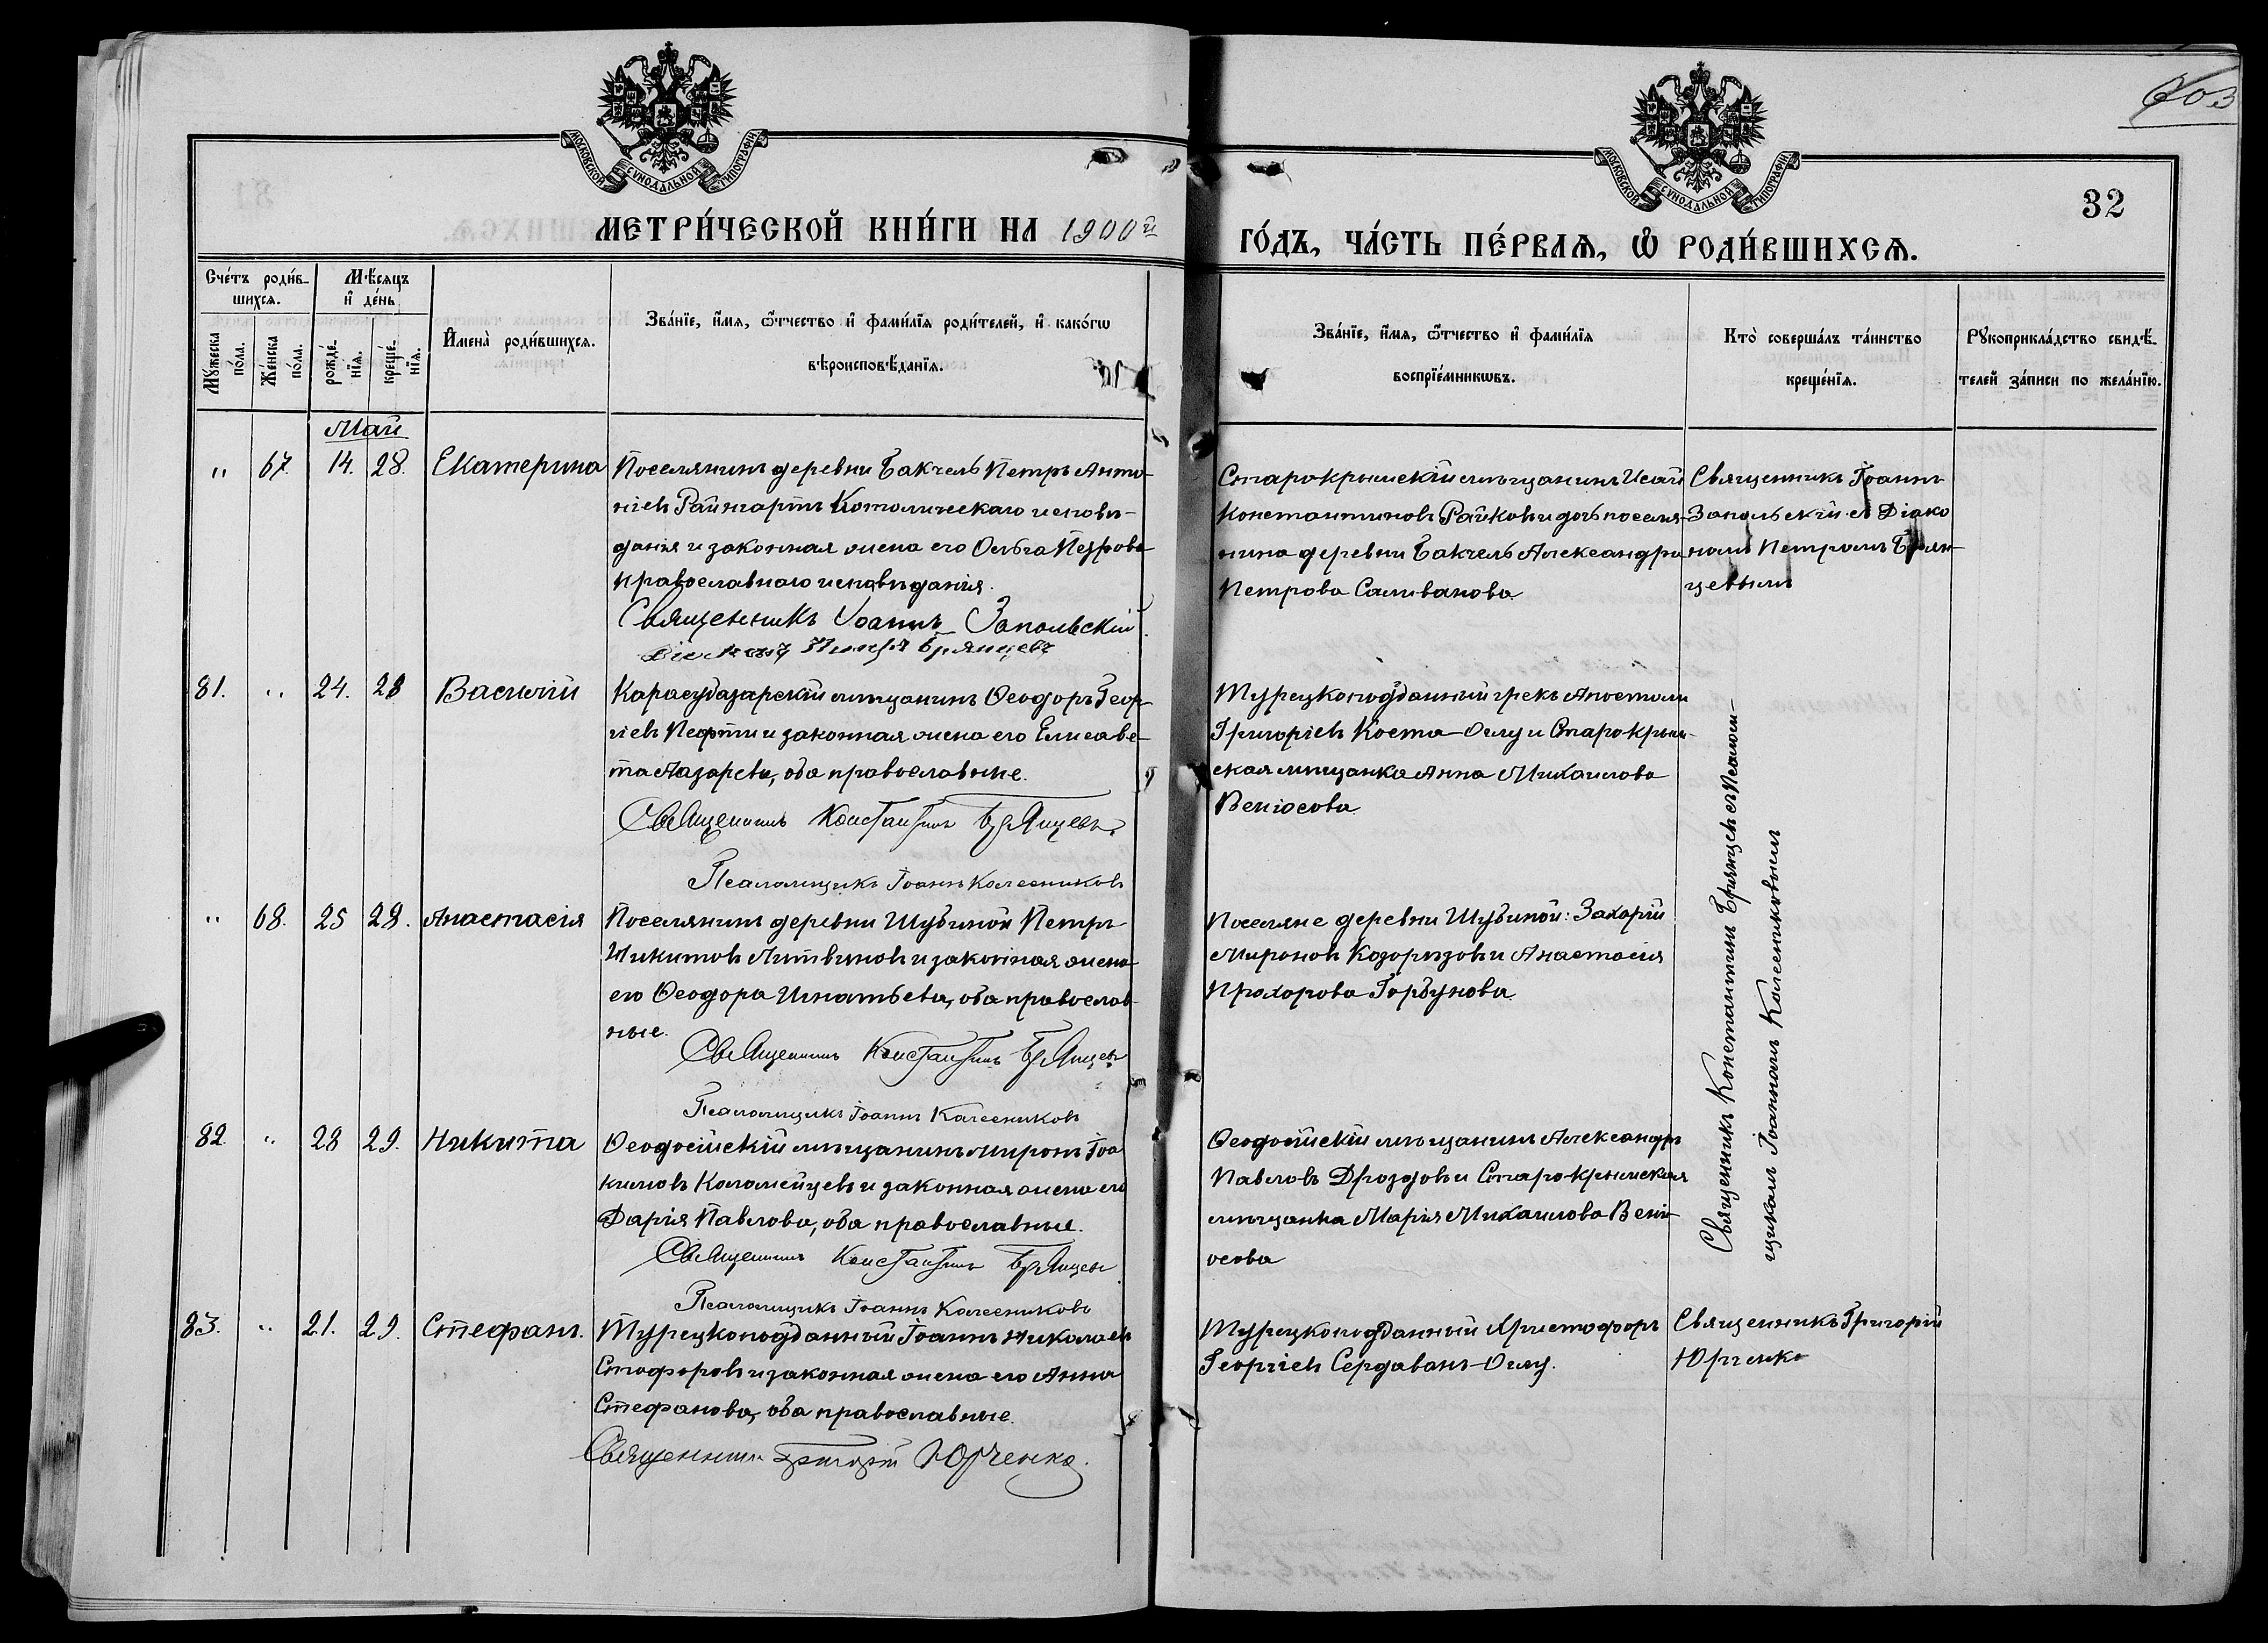 603
МОСКОВСКОЙ СУНОДАЛЬНОЙ ТИПОГРАФІИ
МОСКОВСКОЙ СУНОДАЛЬНОЙ ТИПОГРАФІИ
32
МЕТРИ́ЧЕСКОЙ КНИ́ГИ НА 1900й
ГО́ДЪ, ЧА́СТЬ ПЕ́РВАѦ, Ѡ РОДИ́ВШИХСѦ.
Сче́тъ роди́в-
шихсѧ.
Мѣ́сяцъ
и҆ де́нь
Мꙋ́жеска по́ла.
Же́нска по́ла.
рожде́-нїѧ.
креще́-нїѧ.
И҆мена̀ роди́вшихсѧ.
Зва́нїе, и҆́мѧ, ѻ҆́тчество и҆ фами́лїѧ роди́телей, и҆ како́гѡ
вѣроисповѣ́данїѧ.
Зва́нїе, и҆́мѧ, ѻ҆́тчество и҆ фами́лїѧ
воспрїе́мникѡвъ.
Кто̀ соверша́лъ та́инство
креще́нїѧ.
Рꙋкоприкла́дство свидѣ́-
телей за́писи по жела́нїю.
Май
" 67. 14. 28. Екатерина
Поселянинъ деревни Бакчель Петръ Анто-
ніевъ Райнгартъ Католическаго исповѣ-
данія и законная жена его Ольга Петрова
православнаго исповѣданія.
Священникъ Іоаннъ Запольскій
Діаконъ Петръ Брянцевъ
Старокрымскій мѣщанинъ Исай
Константиновъ Райковъ и дочь поселя-
нина деревни Бакчель Александра
Петрова Саливанова
Священникъ Іоаннъ
Запольскій съ Діако
номъ Петромъ Брян-
цевымъ
81. " 24. 28 Василій
Карасубазарскій мѣщанинъ Ѳеодоръ Геор-
гіевъ Нефти и законная жена его Елисаве-
та Лазарева, оба православные.
Священникъ Константинъ Брянцевъ
Псаломщикъ Іоаннъ Колесниковъ
Турецкоподданный грекъ Апостоли
Григоріевъ Коста-Оглу и Старокрым-
ская мѣщанка Анна Михаилова
Веніосова
" 68. 25 28. Анастасія
Поселянинъ деревни Шубиной Петръ
Никитовъ Литвиновъ и законная жена
его Ѳеодора Игнатьева, оба православ-
ные.
Священникъ Константинъ Брянцевъ
Псаломщикъ Іоаннъ Колесниковъ
Поселяне деревни Шубиной: Захарій
Мироновъ Козорѣзовъ и Анастасія
Прохорова Горбунова
82. " 28 29. Никита
Ѳеодосійскій мѣщанинъ Миронъ Іоа
кимовъ Коломейцевъ и законная жена его
Дарія Павлова, оба православные.
Священникъ Константинъ Брянцевъ
Псаломщикъ Іоаннъ Колесниковъ
Ѳеодосійскій мѣщанинъ Александръ
Павловъ Дроздовъ и Старокрымская
мѣщанка Марія Михаилова Вені-
осова
Священникъ Константинъ Брянцевъ съ Псалом-
щикомъ Іоанномъ Колесниковымъ
83. " 21. 29. Стефанъ.
Турецкоподданный Іоаннъ Николаевъ
Стафоровъ и законная жена его Анна
Стефанова, оба православные.
Священникъ Григорій Юрченко.
Турецкоподданный Христофоръ
Георгіевъ Сердаванъ-Оглу.
Священникъ Григорій
Юрченко